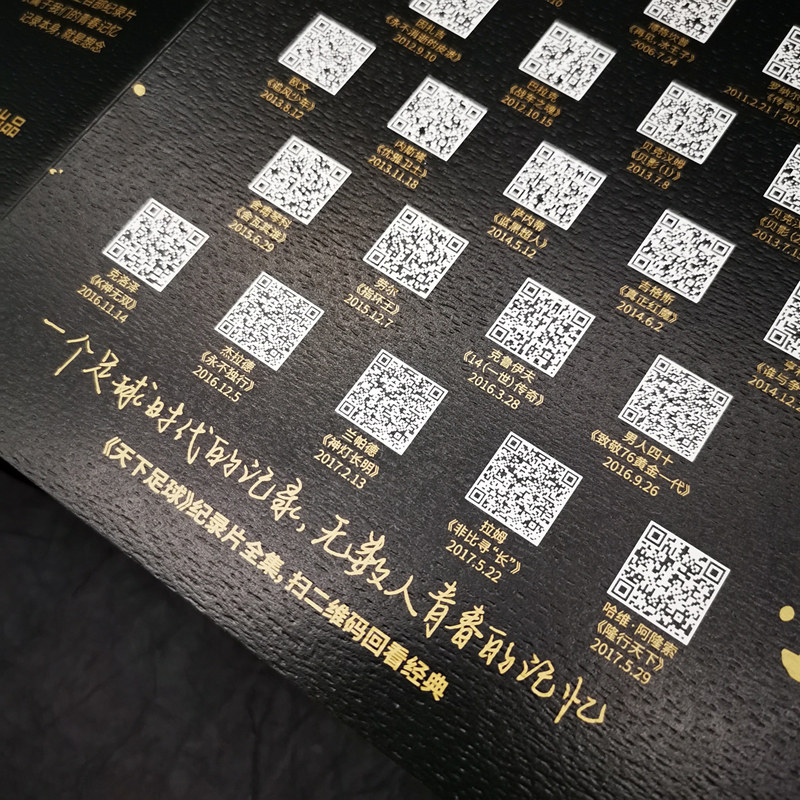 日回纪录片
属于我们的青春记忆
记录本身，就是想念
出品
因扎吉
《永不消逝的皮波》
2012.9.10
《再见·水王子》
2006.7.24
欧文
《追风少年》
2013.8.12
巴拉克
《战车之魂》
2012.10.15
2011.2.21
内斯塔
《优雅卫士》
2013.11.18
贝克汉姆
《贝影(1)》
2013.7.8
舍甫琴科
2015.6.29
萨内蒂
《蓝黑超人》
2014.5.12
《贝影(2
克洛泽
《K神无双》
2016.11.14
劳尔
《指环王》
2015.12.7
吉格斯
《真正红魔》
2014.6.2
杰拉德
《永不独行》
2016.12.5
克鲁伊夫
《14(一世)传奇》
2016.3.28
《谁与争
2014.12.
兰帕德
《神灯长明》
2017.2.13
男人四十
《致敬76黄金一代》
2016.9.26
拉姆
《非比寻“长”》
2017.5.22
哈维·阿隆索
《隆行天下》
2017.5.29
一个足球时代的记录，无数人青春的记忆
《天下足球》纪录片全集，扫二维码回看经典